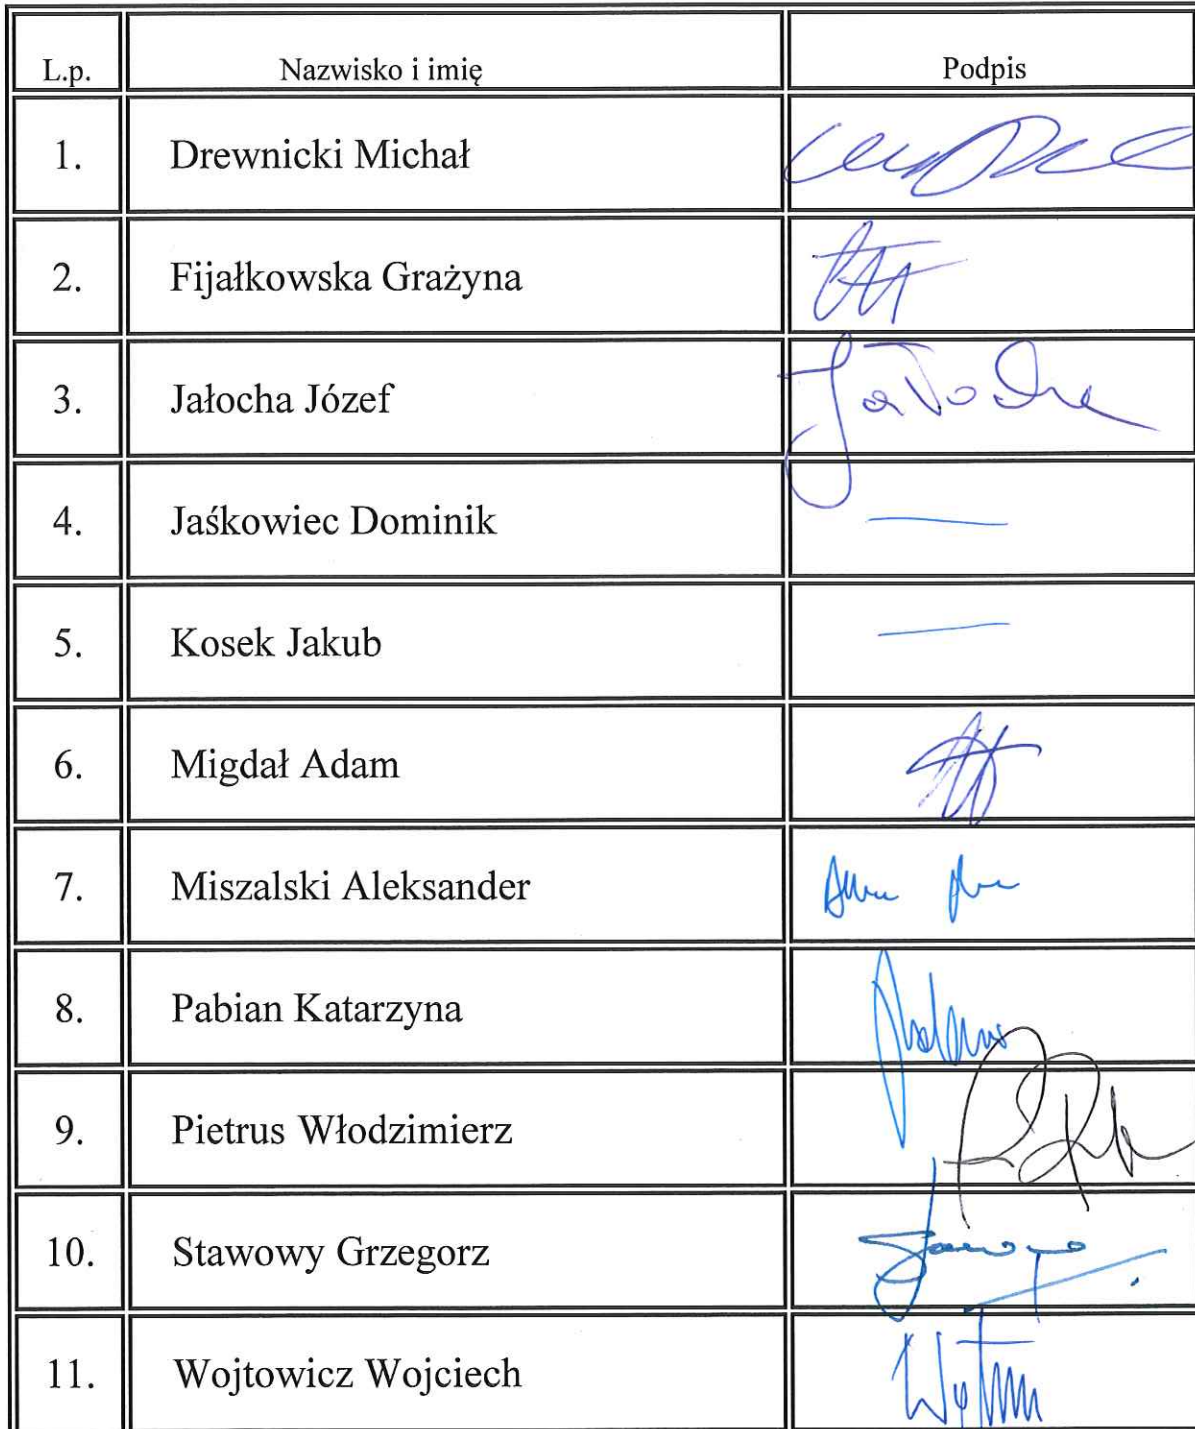 L.p. Nazwisko i imię Podpis
1. Drewnicki Michał
2. Fijałkowska Grażyna
3. Jałocha Józef Jałocha
4. Jaśkowiec Dominik —
5. Kosek Jakub —
6. Migdał Adam
7. Miszalski Aleksander
8. Pabian Katarzyna
9. Pietrus Włodzimierz
10. Stawowy Grzegorz
11. Wojtowicz Wojciech